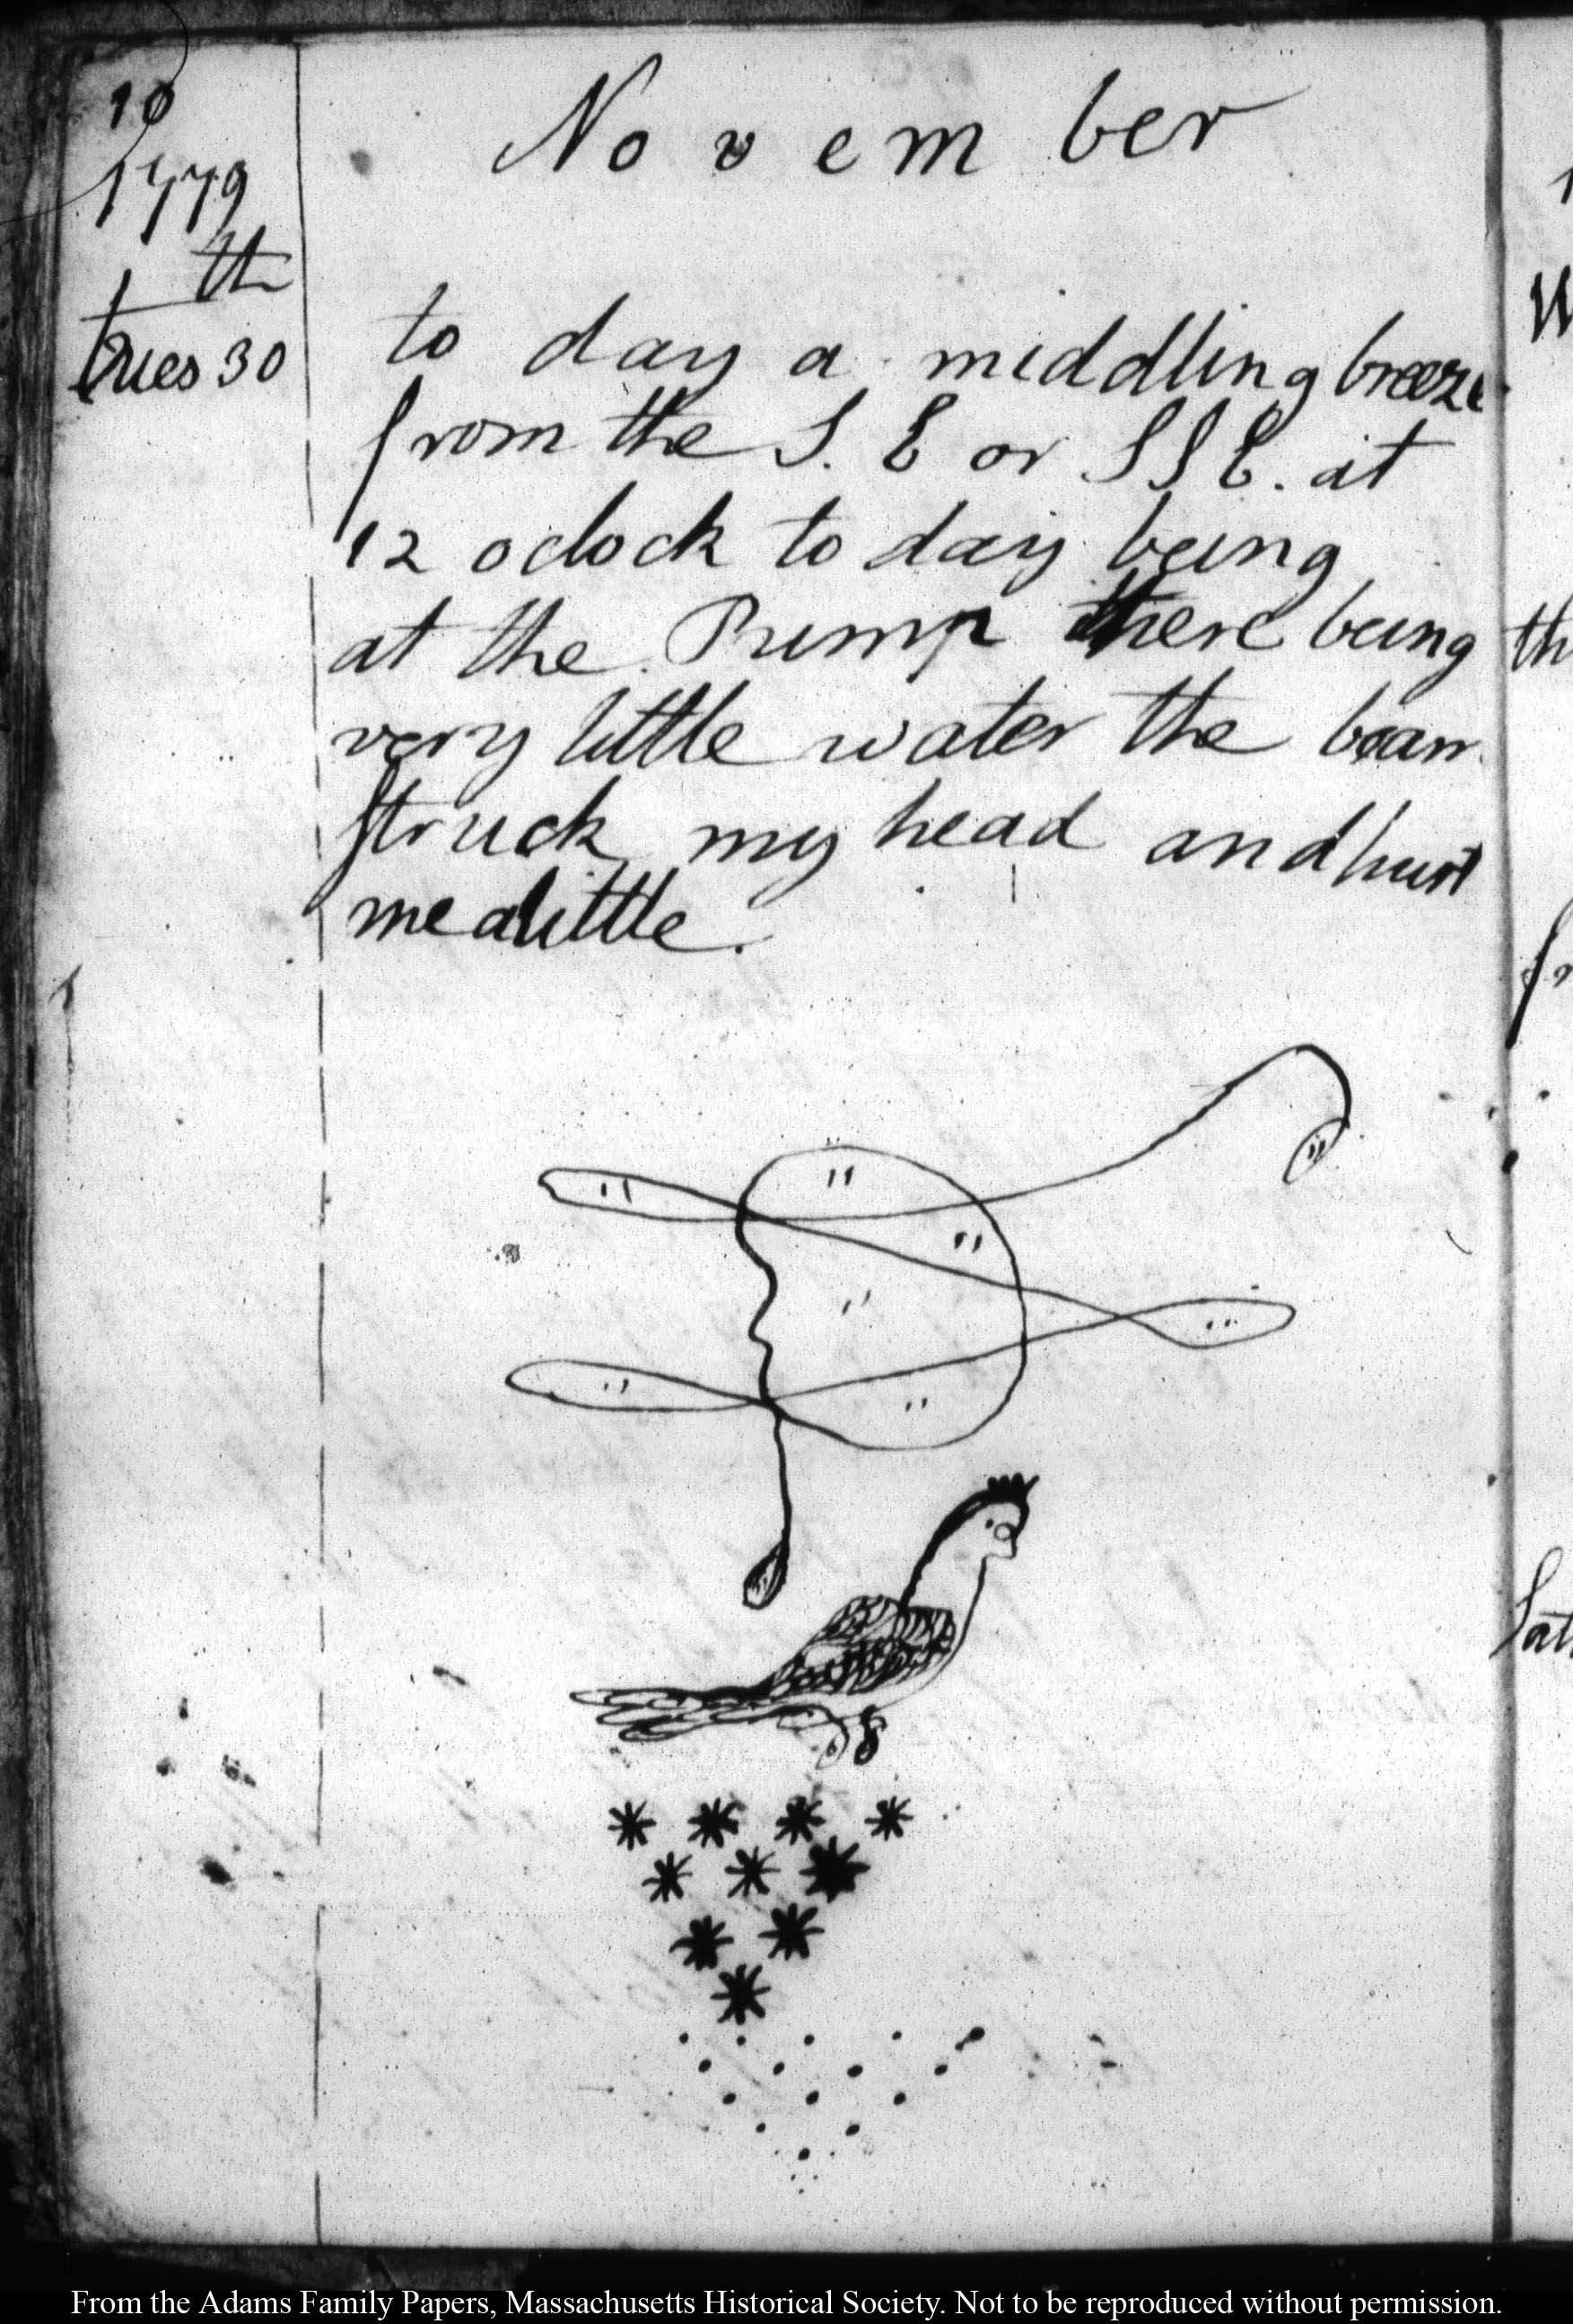 10
1779
th
tues 30
November
to day a middling breeze
from the S. E or S S E. at
12 oclock to day being
at the Pump there being
very little water the
struck my head and hurt
me a little.
th
Sat
From the Adams Family Papers, Massachusetts Historical Society. Not to be reproduced without permission.